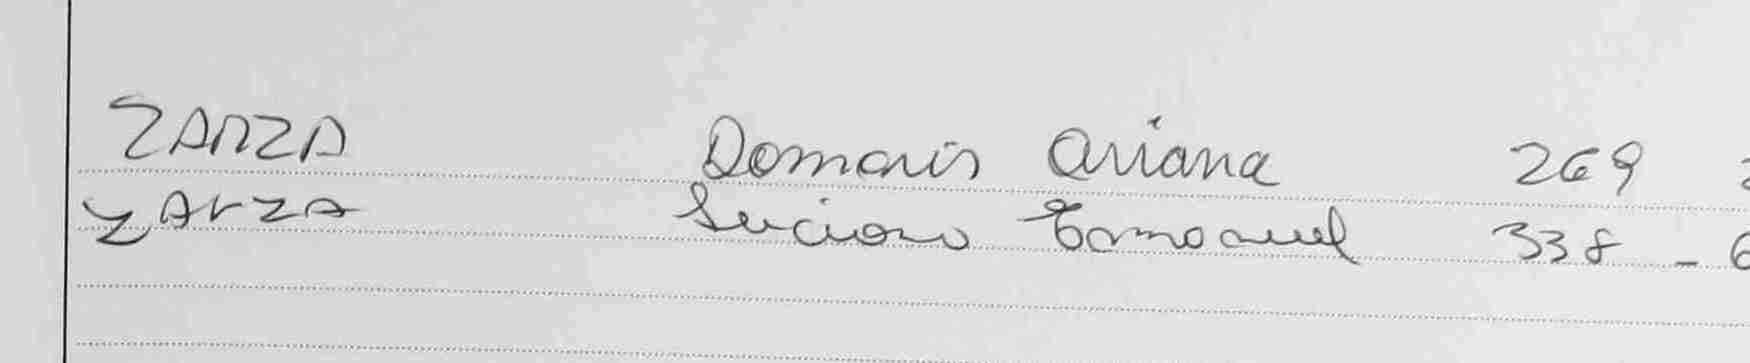 ZARZA Domaris Ariana 269
ZARZA Luciano Emmanuel 338 - 6